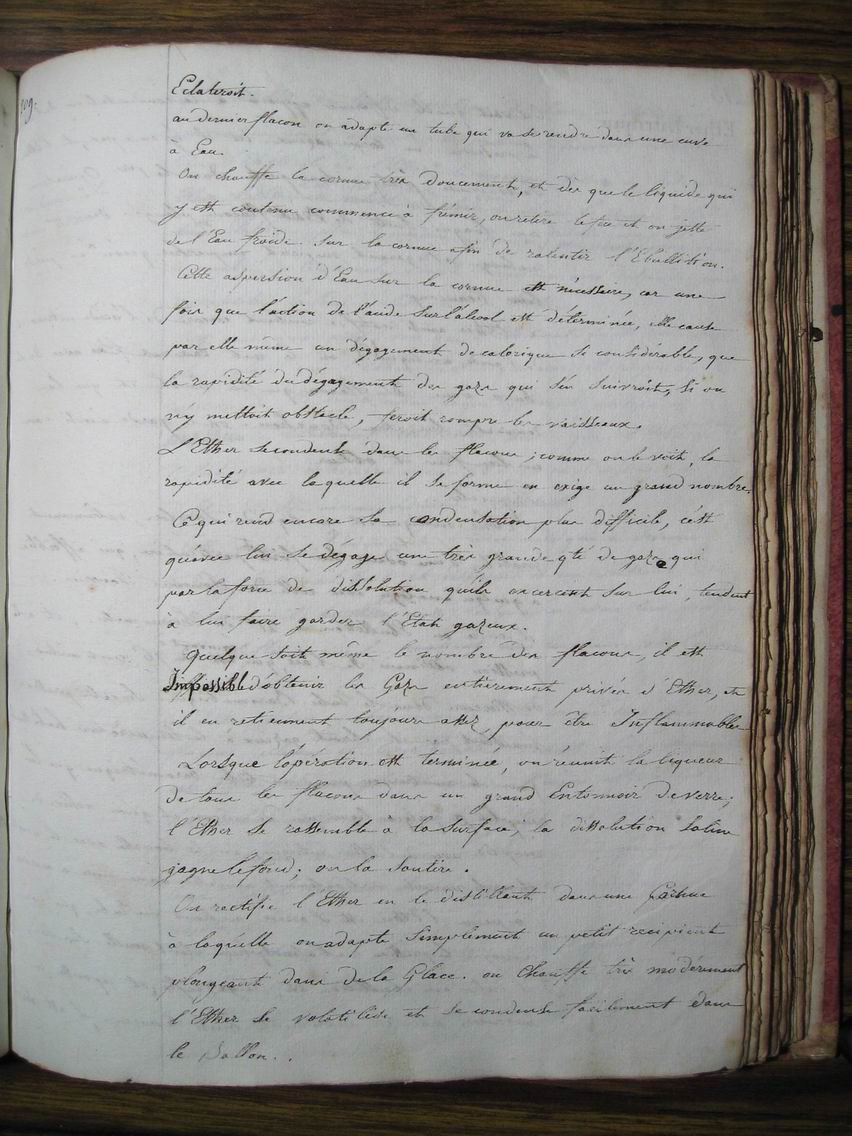 109.
Eclateroit.
au dernier flacon on adapte un tube qui va se rendre dans une cuve
à Eau.
On chauffe la cornue très doucement, et dès que le liquide qui
y est contenu commence à frémir, on retire le feu et on jette
de l'Eau froide sur la cornue afin de ralentir l'Ebullition.
Cette aspersion d'Eau sur la cornue est nécessaire, car une
fois que l'action de l'acide sur l'alcool est déterminée, elle cause
par elle même un dégagement de calorique si considérable, que
la rapidité du dégagement des gazs qui s'en suivroit, si on
n'y mettoit obstacle, feroit rompre les vaisseaux.
L'Ether se condense dans les flacons; comme on le voit, la
rapidité avec laquelle il se forme en exige un grand nombre.
Ce qui rend encore sa condensation plus difficile, c'est
qu'avec lui se dégage une très grande qté de gazs qui
par la force de dissolution qu'ils excercent sur lui, tendent
à lui faire garder l'Etat gazeux.
Quelque soit même le nombre des flacons, il est
Impossible d'obtenir les Gazs entièrement privés d'Ether, et
il en retiennent toujours assez pour être Inflammables
Lorsque l'opération est terminée, on réunit la liqueur
de tous les flacons dans un grand Entonnoir de verre;
l'Ether se rassemble à la surface; la dissolution saline
gagne le fond; on la soutire.
On rectifie l'Ether en le distillant dans une Cornue
à laquelle on adapte simplement un petit recipient
plongeant dans de la Glace. on chauffe très modérément
l'Ether se volatilise et se condense facilement dans
le Ballon..